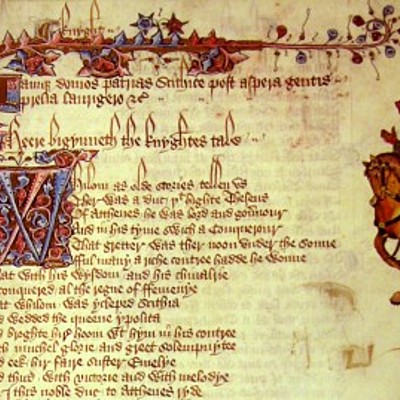 knyght
Iamque domos patrias Scithice post aspera gentis
prelia laurigero &c
Heere bigynneth the knyghtes tale
Whilom as olde stories tellen vs
Ther was a duc þt highte Theseus
Of Atthenes he was lord and gouernour
And in his tyme swich a Conquerour
That gretter was ther noon vnder the sonne
fful many a riche contree hadde he wonne
at with his wysdom and his chiualrie
conquered al the regne of ffemenye
at whilom was ycleped Scithia
d wedded the queene ypolita
d broghte hir hoom wt hym in his contree
h muchel glorie and greet solempnytee
d eek hir faire suster Emelye
d thus with victorie and with melodye
this noble duc to Atthenes ryde